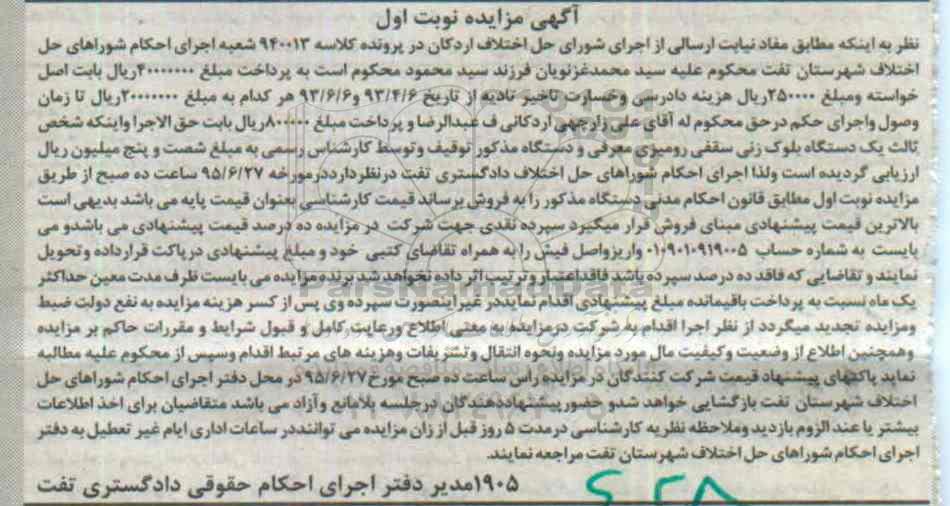 آگهی مزایده نوبت اول
نظر به اینکه مطابق مفاد نیابت ارسالی از اجرای شورای حل اختلاف اردکان در پرونده کلاسه ۹۴۰۰۱۳ شعبه اجرای احکام شوراهای حل
اختلاف شهرستان تفت محکوم علیه سید محمدغزنویان فرزند سید محمود محکوم است به پرداخت مبلغ ۴۰۰۰۰۰۰۰ریال بابت اصل
خواسته ومبلغ ۲۵۰۰۰۰ریال هزینه دادرسی وخسارت تاخیر تادیه از تاریخ ۹۳/۴/۶ و۹۳/۶/۶ هر کدام به مبلغ ۲۰۰۰۰۰۰۰ریال تا زمان
وصول واجرای حکم درحق محکوم له آقای علی زارجهی اردکانی ف عبدالرضا و پرداخت مبلغ ۸۰۰۰۰۰ریال بابت حق الاجرا واینکه شخص
ثالث یک دستگاه بلوک زنی سقفی رومیزی معرفی و دستگاه مذکور توقیف وتوسط کارشناس رسمی به مبلغ شصت و پنج میلیون ریال
ارزیابی گردیده است ولذا اجرای احکام شوراهای حل اختلاف دادگستری تفت درنظرداردرمورخه ۹۵/۶/۲۷ ساعت ده صبح از طریق
مزایده نوبت اول مطابق قانون احکام مدنی دستگاه مذکور را به فروش برساند قیمت کارشناسی بعنوان قیمت پایه می باشد بدیهی است
بالاترین قیمت پیشنهادی مبنای فروش قرار میگیرد سپرده نقدی جهت شرکت در مزایده ده درصد قیمت پیشنهادی می باشدو می
بایست به شماره حساب ۰۱۰۹۰۱۰۹۱۹۰۰۵ واریزواصل فیش را به همراه تقاضای کتبی خود و مبلغ پیشنهادی درپاکت قرارداده وتحویل
نمایند و تقاضایی که فاقد ده درصد سپرده باشد فاقداعتبار وترتیب اثر داده نخواهدشدبرنده مزایده می بایست ظرف مدت معین حداکثر
یک ماه نسبت به پرداخت باقیمانده مبلغ پیشنهادی اقدام نمایددر غیراینصورت سپرده وی پس از کسر هزینه مزایده به نفع دولت ضبط
ومزایده تجدید میگردد از نظر اجرا اقدام به شرکت درمزایده به معنی اطلاع ورعایت کامل و قبول شرایط و مقررات حاکم بر مزایده
وهمچنین اطلاع از وضعیت وکیفیت مال مورد مزایده ونحوه انتقال وتشریفات وهزینه های مرتبط اقدام وسپس از محکوم علیه مطالبه
نماید پاکتهای پیشنهاد قیمت شرکت کنندگان در مزایده راس ساعت ده صبح مورخ ۹۵/۶/۲۷ در محل دفتر اجرای احکام شوراهای حل
اختلاف شهرستان تفت بازگشایی خواهد شدو حضورپیشنهاددهندگان درجلسه بلامانع وآزاد می باشد متقاضیان برای اخذ اطلاعات
بیشتر یا عند الزوم بازدید وملاحظه نظریه کارشناسی درمدت ۵ روز قبل از زان مزایده می تواننددر ساعات اداری ایام غیر تعطیل به دفتر
اجرای احکام شوراهای حل اختلاف شهرستان تفت مراجعه نمایند.
۱۹۰۵مدیر دفتر اجرای احکام حقوقی دادگستری تفت
۶،۲۸
ParsNamadData